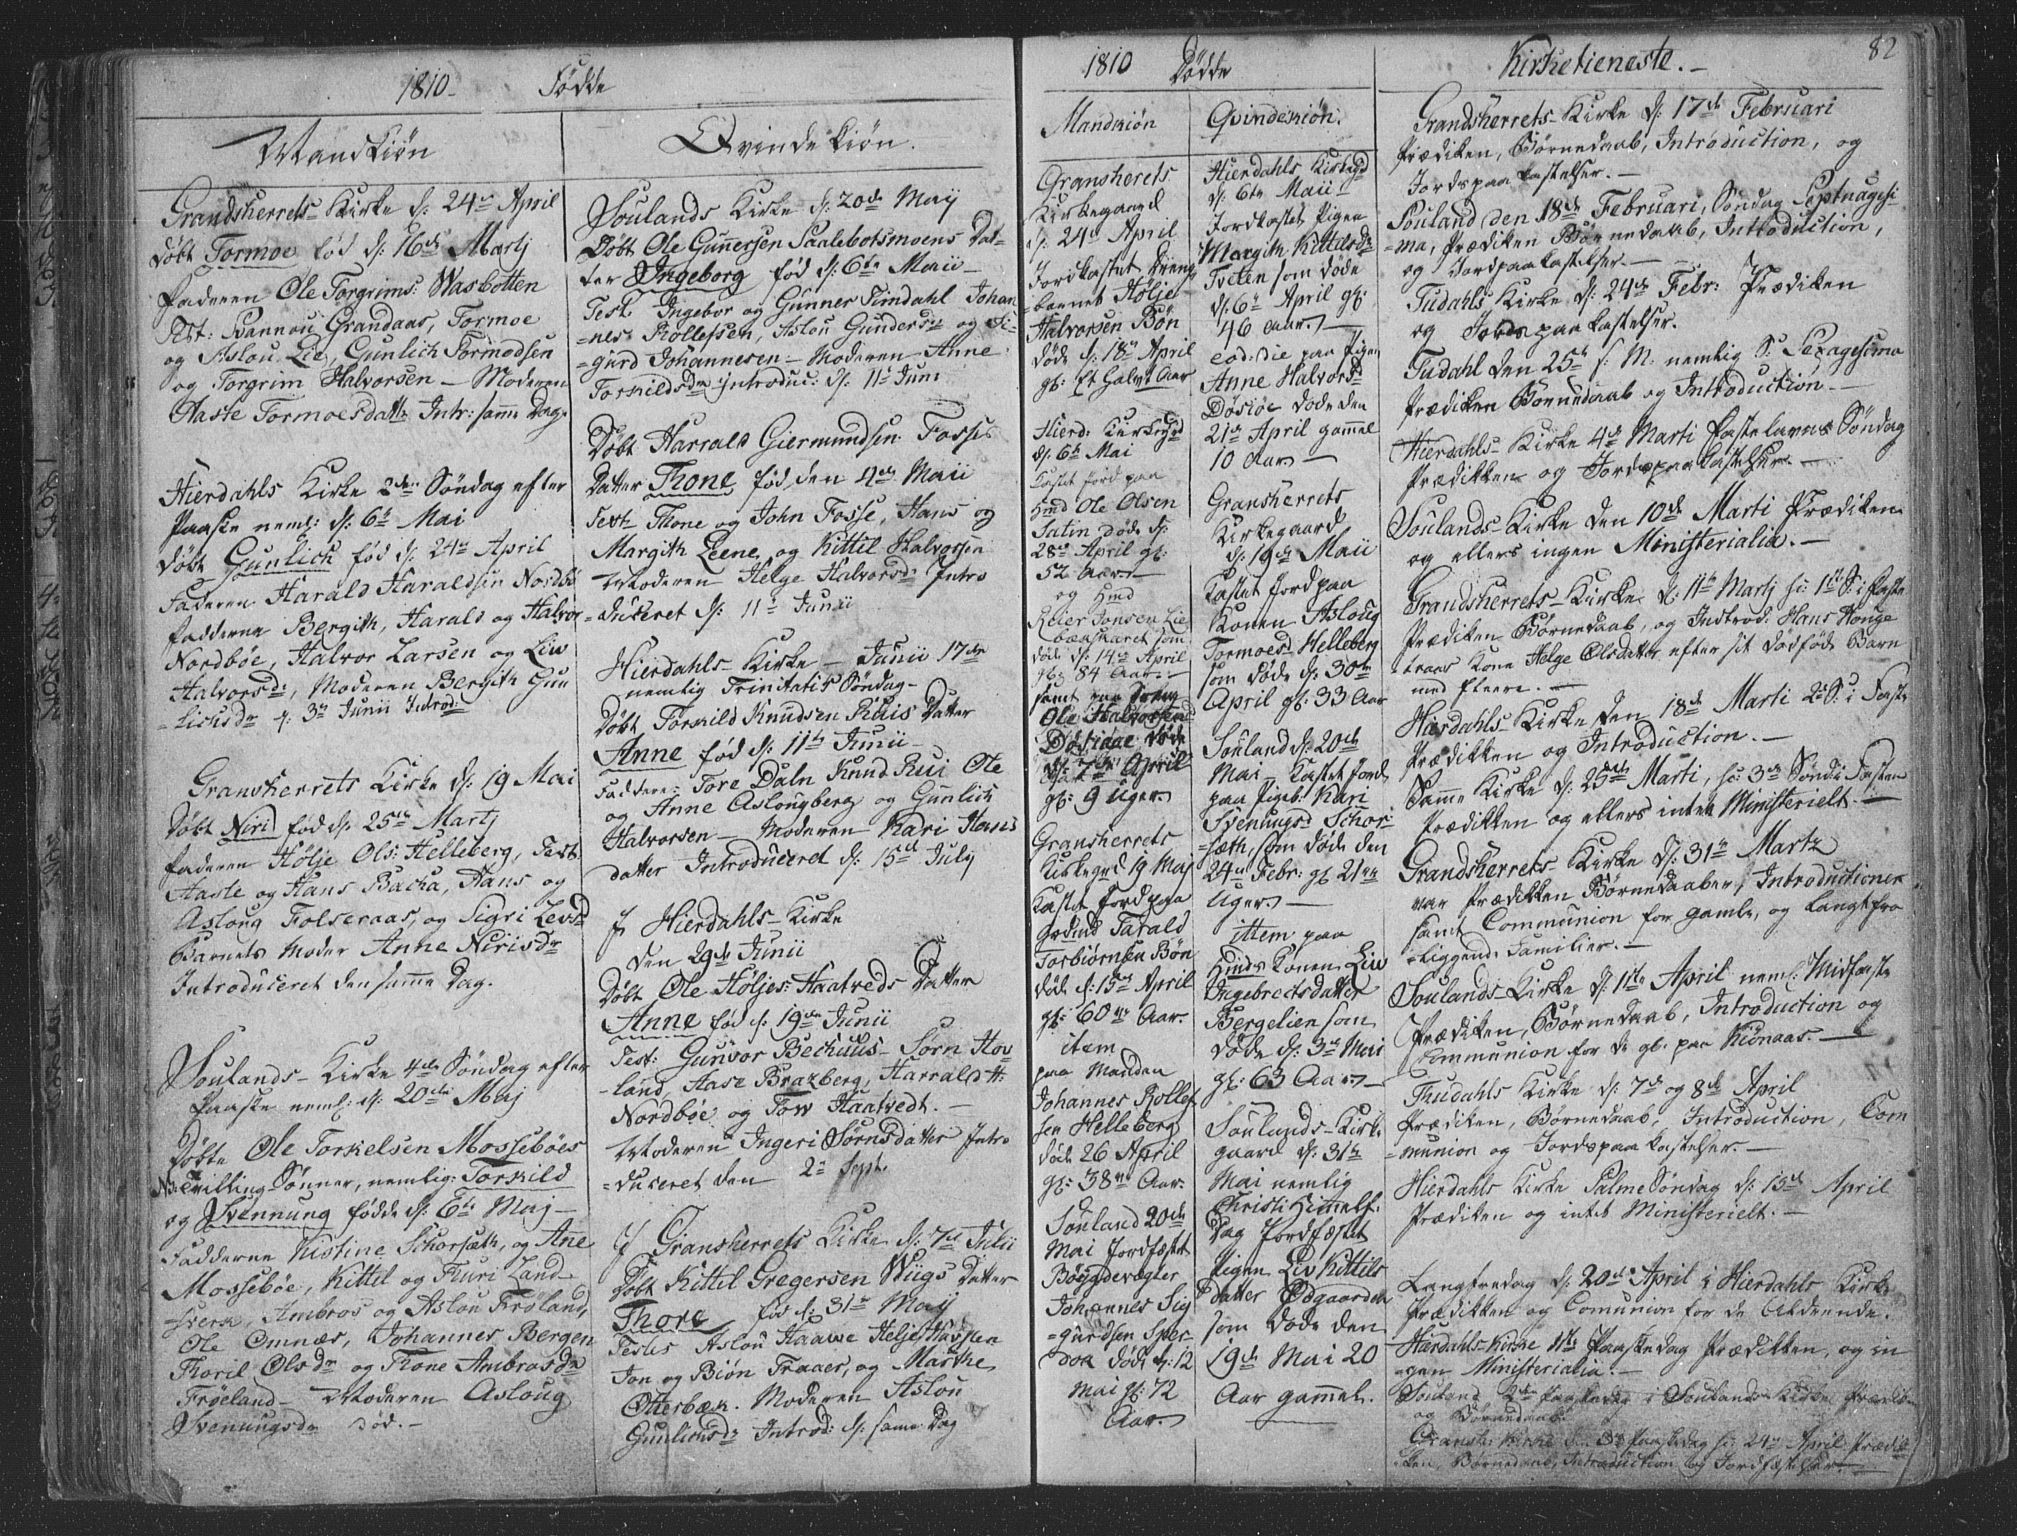 1810 Fødde
Mandkiøn
Grandsherrets Kirke d: 24de April
døbt Tormoe fød d: 16de Martj
Faderen Ole Torgrims: Wasbotten
Test: Grandaas, Tormoe
og Aslou Lie, Gunlich Tormodsen
og Torgrim Halvorsen – Moderen
Aaste Tormoesdatt: Intr: samme Dag.
Hierdahls Kirke 2den Søndag efter
Paaske neml: d: 6te Mai
døbt Gunlich fød d: 24de April
Faderen Harald Haraldsen Nordbø
Fadderne Bergith, Harald og Halvor
Nordbøe, Halvor Larsen og Liv
Halvorsdr, Moderen Bergith Gun
-lichsdr d: 3de Junii Introd:
Gransherrets Kirke d: 19 Mai
Døbt Niri fød d: 25de Martj
Faderen Hølje Ols: Helleberg, Test:
Aaste og Hans Backa, Hans og
Aslong Folseraas, og Sigri Levsd
Barnets Moder Anne Nirisdr
Introduceret den samme Dag.
Soulands Kirke 4de Søndag efter
Paaske neml: d: 20de Maj
Døbte Ole Torkelsen Mossebøes
Tvilling Sønner, nemlig: Torkild
og Svennung fødde d: 6te Maj –
Fadderne Kistine Schorsæth, og Ane
Mossebøe, Kittil og Turi Land-
sverk, Ambros og Aslou Frøland,
Ole Omnæs, Johannes Bergen
Thoril Olsdr og Thone Ambrosdr
Frøeland – Moderen Aasloug
Svenungsdr død. –
Qvindekiøn.
Soulands Kirke d: 20de Maij
Døbt Ole Gunnersen Saalebotsmoens Dat-
ter Ingeborg fød d: 6te Maii –
Test: Ingebor og Gunner Timdahl Johan
-nes Rollefsen, Aslou Gundersdr og Si-
-gurd Johannesen – Moderen Anne
Torkildsdr Introduc: d: 11te Juni
Døbt Harrald Giermundsen Fosses
Datter Thone fød den 4de Maii
Test: Thone og John Fosse, Hans og
Margith Leene og Kittil Halvorsen
Moderen Helge Halvorsdr Intro
-duceret d: 11te Junii
Hierdahls Kirke – Junii 17de
nemlig Trinitatis Søndag –
Døbt Torkild Knudsen Ruis Datter
Anne fød d: 11te Junii –
Faddere: Tore Daln Knud Rui Ole
og Anne Aslougberg og Gunlich
Halvorsen – Moderen Kari Hans
datter Introduceret d: 15de Julij
I Hierdahls Kirke
den 29de Junii
Døbt Ole Høljes: Haatveds Datter
Anne fød d: 19de Junii
Test: Gunvor Bechuus – Sørn Hov-
-land, Aase Brazberg, Harrald H:
Nordbøe og Tow Haatvedt. –
Moderen Ingeri Sørnsdatter Intro
-duceret den 2de Sept:
I Gransherrets Kirke d: 7de Julii
Døbt Kittil Gregersen Wiigs Datter
Thore fød d: 31te Maij
Testes Aslou Haawe Helje
Jon og Biøn Traaer, og Marthe
Otterbæk. Moderen Aslou
Gunlichsdr Introd: d: samme Dag
1810 Dødde
Mandkiøn
Gransherets
Kirkegaard
d: 24de April
Jordkastet Dreng
barnet Hølje
Halvorsen Bøn
døde d: 18de April
gl: Et Halvt Aar
Hierd: Kirkegrd
d: 6te Mai
Kastet Jord paa
Hmd Ole Olsen
Satin døde d:
28de April gl.
52 Aar. –
og Hmd
Reier Jonsen Lie
døde d: 14de April
gl: 84 Aar. –
samt paa Dreng
Ole Halvorsen
Døsiøe døde
d: 7de April
gl: 9 Uger.
Gransherrets
Kirkegrd 19 Maj
Kastet Jord paa
Tarald
Torbiørnsen Bøn
døde d: 15de April
gl: 60 Aar.
item
paa Manden
Johannes Rollef
sen Helleberg
døde 26 April
gl: 38 Aar.
Souland 20de
Mai Jordfæstet
Bøygdevægter
Johannes Sig
-gurdsen Sper-
døde d: 12
Mai gl: 72
Aar. –
Qvindekiøn.
Hierdahls Kirkegd
d: 6te Maii
Jordkastet Pigen
Margith Kittilsdr
Tveten som døde
d: 6te April gl:
46 Aar. –
eod: die paa Pigen
Anne Halvorsd
Døsiøe døde den
21de April gammel
10 Aar. –
Gransherrets
Kirkegaard
d: 19de Maii
Kastet Jord paa
Konen Asloug
Tormoesd Helleberg
som døde d: 30te
April gl: 33 Aar
Souland d: 20de
Mai Kastet Jord
paa Pigeb: Kari
Svenungsd Schor-
sæth, som døde den
24de Febr: gl 21
Uger. –
ittem paa
Hmds Konen Liv
Ingebretsdatter
Bergelien som
døde d: 3de Mai
gl: 63 Aar. –
Soulands Kirk:
gaard d: 31te
Mai nemlig
Christi Himelf:
Dag Jordfæstet
Pigen Liv Kittils
datter Ødgaarden
som døde den
19de Mai 20
Aar gammel.
Kirketieneste. –
82
Grandsherrets Kirke d: 17de Februari
Prædiken, Børnedaab, Introduction, og
Jordspaakastelser. –
Souland den 18de Februari, Søndag Septuagesi
-ma, Prædiken Børnedaab, Introduction,
og Jordpaakastelser. –
Tudahls Kirke d: 24de Febr: Prædiken
og Jordspaakastelser.
Tudahl den 25de s. M. nemlig S. Sexagesima
Prædiken Børnedaab og Introduction. –
Hierdahls Kirke 4de Marti Fastelavns Søndag
Prædikken og Jordspaakastelser –
Soulands Kirke den 10de Marti Prædiken
og ellers ingen Ministerialia. –
Grandsherrets Kirke d: 11te Martj h: 1ste S: i Faste
Prædiken Børnedaab, og Introd: Hans Honge
traas Kone Helge Olsdatter efter sit dødføde Barn
med fleere. –
Hierdahls Kirke den 18de Marti 2de S: i Faste
Prædikken og Introduction. –
Samme Kirke d: 25de Marti, h: 3de Sønd: i Fasten
Prædikken og ellers intet Ministerielt. –
Grandsherrets Kirke d: 31te Martz
var Prædikken Børnedaaber, Introductioner
samt Communion for gamle, og langt fra
-liggende Familier. –
Soulands Kirke d: 1ste April neml: Midfaste
Prædiken, Børnedaab, Introduction og
Communion for de gl: paa Kionaas. –
Thudahls Kirke d: 7de og 8de April
Prædiken, Børnedaab, Introduction, Com
-munion og Jordspaakastelser. –
Hierdahls Kirke Palme Søndag d: 15de April
Prædiken og intet Ministerielt. –
Langfredag d: 20de April i Hierdahls Kirke
Prædikken og Comunion for de
Hierdahls Kirke 1ste Paaskedag Prædikken, og in
-gen Ministerialia. –
Souland 2den Paaskedag i Soulands Kirke Prædiken
og Børnedaab.
Gransh: Kirke 3de Paaskedag h: 24de April Prædik
-ken, Børnedaab, Introduction og Jordfæstelser. –